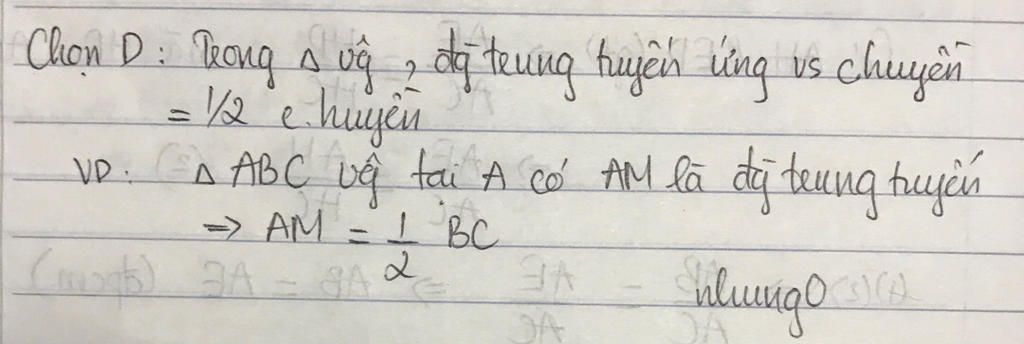 Chọn D : Trong Δ vg , đg trung tuyến ứng vs chuyền
= 1/2 c.huyền
VD : Δ ABC vg tại A có AM là đg trung tuyến
=> AM = 1/2 BC
nhung0